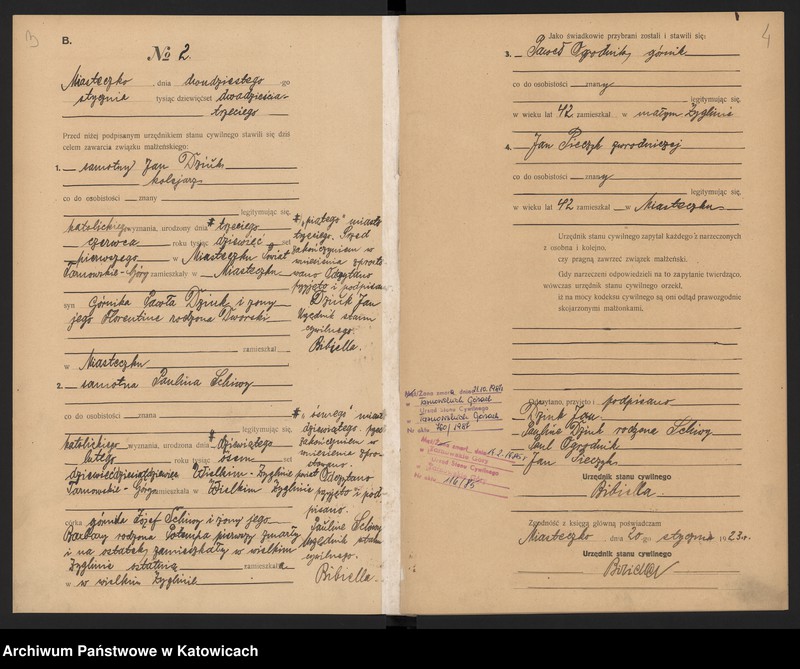 B.
№ 2.
Miasteczko, dnia dwudziestego -go
stycznia tysiąc dziewięćset dwadzieścia
trzeciego
Przed niżej podpisanym urzędnikiem stanu cywilnego stawili się dziś
celem zawarcia związku małżeńskiego:
1. samotny Jan Dziuk
kolejarz
co do osobistości znany
legitymując się,
katolickiego wyznania, urodzony dnia # trzeciego
czerwca roku tysiąc dziewięć set
pierwszego w Miasteczku powiat
Tarnowskie-Góry zamieszkały w Miasteczku
syn Górnika Pawła Dziuk i żony
jego Florentine rodzona Dworski
zamieszkał
w Miasteczku
# "piątego" miast
trzeciego. Przed
zakończeniem w
niesienia sprosto
wano Odczytano
przyjęto i podpisan
Dziuk Jan
Urzędnik stanu
cywilnego.
Bibiella.
2. samotna Paulina Schiwy
co do osobistości znana
legitymując się,
katolickiego wyznania, urodzona dnia # dziewiątego
lutego roku tysiąc ósem set
dziewięćdziesiątdziewięć Wielkim-Żyglinie powiat
Tarnowskie-Góry zamieszkała w Wielkim Żyglinie
córka górnika Józef Schiwy i żony jego
Barbary rodzona Potempa pierwszy zmarły
i na ostatek zamieszkały w wielkim
Żyglinie ostatnia zamieszkała
w w wielkim Żyglinie
# "ósmego" miast
dziewiątego. przed
zakończeniem w
niesienie spro
stowano.
Odczytano
przyjęto i pod-
pisano.
Pauline Schiwy
Urzędnik stanu
cywilnego.
Bibiella.
4
Jako świadkowie przybrani zostali i stawili się:
3. Paweł Ogrodnik, górnik
co do osobistości znany
legitymując się,
w wieku lat 42 zamieszkał w małym Żyglinie
4. Jan Pieczyk
co do osobistości znany
legitymując się,
w wieku lat 42 zamieszkał w Miasteczku
Urzędnik stanu cywilnego zapytał każdego z narzeczonych
z osobna i kolejno,
czy pragną zawrzeć związek małżeński.
Gdy narzeczeni odpowiedzieli na to zapytanie twierdząco,
wówczas urzędnik stanu cywilnego orzekł,
iż na mocy kodeksu cywilnego są oni odtąd prawozgodnie
skojarzonymi małżonkami.
Odczytano, przyjęto i podpisano
Dziuk Jan
Pauline Dziuk rodzona Schiwy
Paul Ogrodnik
Jan Pieczyk
Urzędnik stanu cywilnego
Bibiella.
Zgodność z księgą główną poświadczam
Miasteczko, dnia 20 go stycznia 1923 r.
Urzędnik stanu cywilnego
Bibiella
Urząd Stanu Cywilnego
Tarnowskich Górach
Archiwum Państwowe w Katowicach